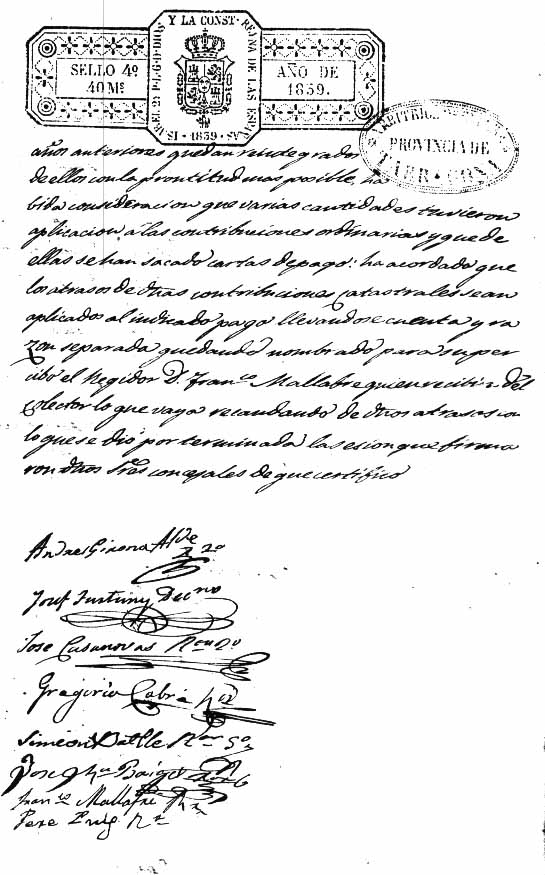 Y LA CONST.
REYNA DE LAS ESPAÑAS
ISABEL 2ª P.L.G.D.DIOS
1839
SELLO 4º
40 Mˢ
AÑO DE
1839.
ARBITRIOS
PROVINCIA DE
TARRAGONA
años anteriores quedan reintegrados
de ellos con la prontitud mas posible, ha
bida consideracion que varias cantidades tuvieron
aplicacion á las contribuciones ordinarias y que de
ellas se han sacado cartas de pago: ha acordado que
los atrasos de dhas contribuciones Catastrales sean
aplicados al indicado pago llevandose cuenta y ra
zon separada quedando nombrado para su per
cibo el Regidor D. Franᶜᵒ Mallafre quien recibirá del
Colector lo que vaya recaudando de dhos atrasos con
lo que se dió por terminada la sesion que firma
ron dhos Sres concejales de que certifico
Andres Girona Alde 2º
Josef Fortuny
Jose Casanovas 2º
Gregorio Cabré
Simeon Batlle 5º
Jose
Franᶜᵒ Mallafré
Pere Puig